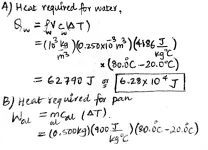 A) Heat required for water,
Qw = ρw V c (ΔT)
= (10³ kg/m³)(0.250×10⁻³ m³)(4186 J/kg°C)
× (80.0°C - 20.0°C)
= 62790 J or 6.28×10⁴ J
B) Heat required for pan
Wal = mcal (ΔT).
= (0.500kg)(900 J/kg°C)(80.0°C - 20.0°C)